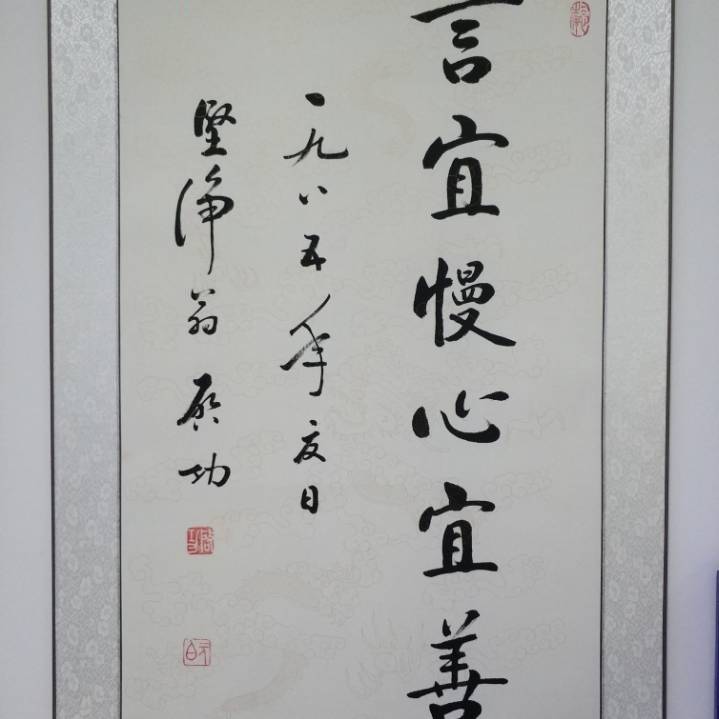 言宜慢心宜善
一九八五年夏日
坚净翁启功